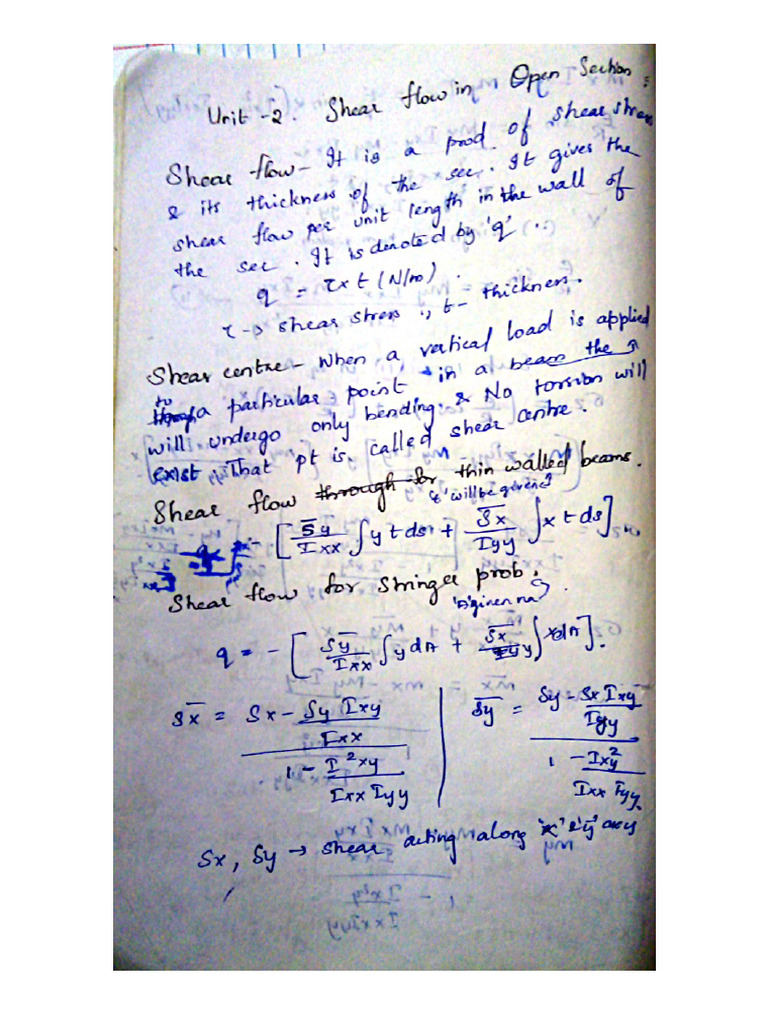 Unit -2. Shear flow in Open Section:
Shear flow - It is a prod. of shear stress
& its thickness of the sec. It gives the
shear flow per unit length in the wall of
the sec. It is denoted by 'q'.
q = τ x t (N/m).
τ → shear stress, t - thickness.
Shear centre - When a vertical load is applied
to a particular point in a beam the
will undergo only bending & No torsion will
exist. That pt is called shear centre.
Shear flow through for thin walled beams.
't' will be given
- [ S̅y/Ixx ∫ y t ds + S̅x/Iyy ∫ x t ds ]
Shear flow for Stringer prob.
q = - [ S̅y/Ixx ∫ y dA + S̅x/Iyy ∫ x dA ].
S̅x = (Sx - Sy Ixy/Ixx) / (1 - I²xy/Ixx Iyy)
S̅y = (Sy - Sx Ixy/Iyy) / (1 - Ixy²/Ixx Iyy)
Sx, Sy → shear acting along 'x' & 'y' axes